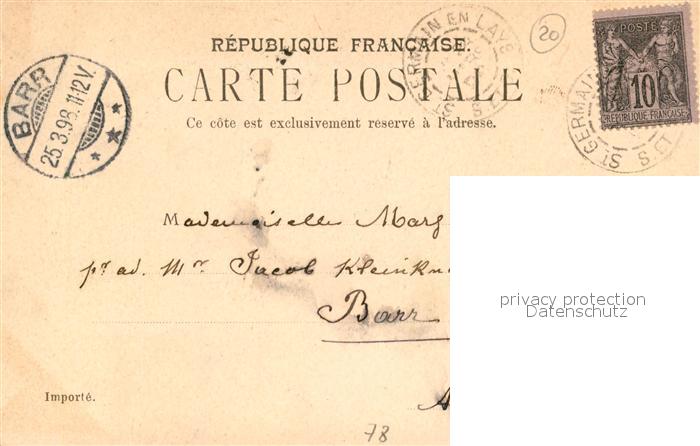 RÉPUBLIQUE FRANÇAISE.
CARTE POSTALE
Ce côte est exclusivement reservé à l'adresse.
BARR
25.3.98.1112V.
GERMAIN EN LAYE
20
POSTE
10
REPUBLIQUE FRANÇAISE
ST GERMAIN
Mademoiselle Marg
pr ad. Mr Jacob Kleinkn
Barr
privacy protection
Datenschutz
Importé.
78